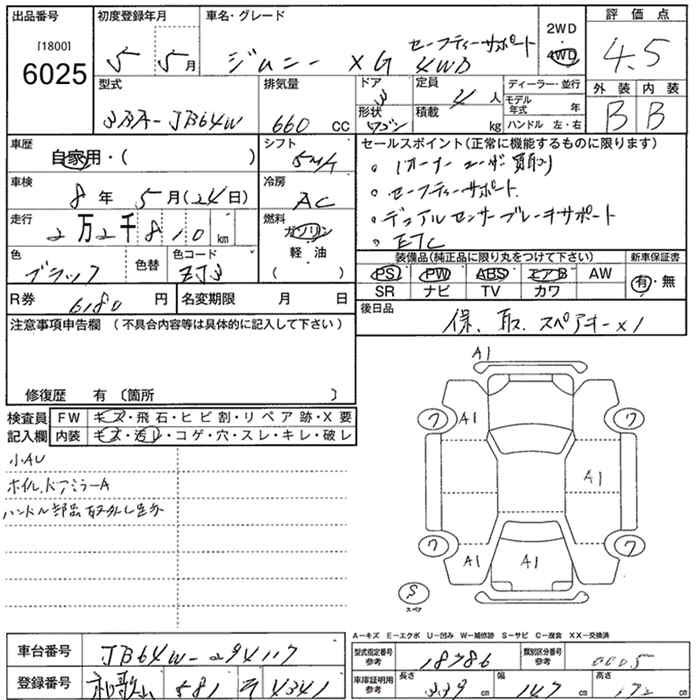 出品番号 初度登録年月 車名・グレード 2WD 評価点
[1800] セーフティーサポート
6025 5 5月 ジムニー XG 4WD 4WD 4.5
型式 排気量 ドア 3 定員 4人 ディーラー・並行 外装 内装
3BA-JB64W 660 CC 形状 ワゴン 積載 kg モデル年式 年 B B
ハンドル 左・右
車歴 シフト セールスポイント(正常に機能するものに限ります)
自家用・( ) 5MT ・1オーナーユーザー買取り
車検 冷房 ・セーフティーサポート
8年 5月(24日) AC ・デュアルセンサーブレーキサポート
走行 燃料 ・ETC
2万2千810km ガソリン
色 色替 色コード 軽油 装備品(純正品に限り丸をつけて下さい) 新車保証書
ブラック ZJ3 ( ) PS PW ABS エアB AW 有・無
R券 6180円 名変期限 月 日 SR ナビ TV カワ
後日品
注意事項申告欄(不具合内容等は具体的に記入して下さい) 保、取、スペアキーx1
修復歴 有〔箇所 〕
検査員 FW キズ・飛石・ヒビ割・リペア跡・X要
記入欄 内装 キズ・汚レ・コゲ・穴・スレ・キレ・破レ
小AU
ホイル、ドアミラーA
ハンドル部品取外し
A1
ワ A1 ワ
A1
ワ A1 A1 ワ
S
スペア
A-キズ E-エクボ U-凹み W-補修跡 S-サビ C-腐食 XX-交換済
車台番号 JB64W-294117 型式指定番号 参考 18786 類別区分番号 参考 0005
登録番号 和歌山 581 そ 4341 車庫証明用 参考 長さ 339cm 幅 147cm 高さ 172cm